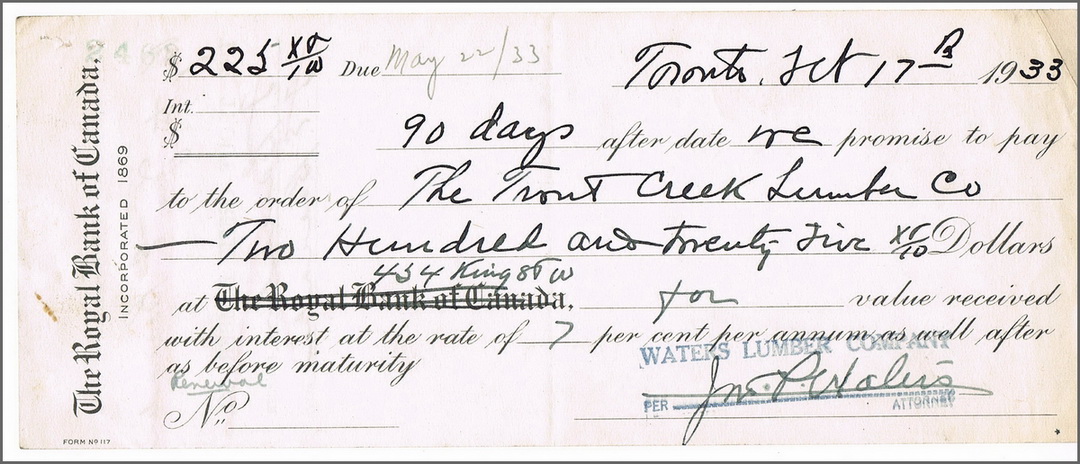 The Royal Bank of Canada,
INCORPORATED 1869
$ 225 XX/100 Due May 22/33 Toronto, Feb 17th 1933
Int.
$
90 days after date we promise to pay
to the order of The Trout Creek Lumber Co
Two Hundred and twenty five XX/100 Dollars
454 King St W
at The Royal Bank of Canada, for value received
with interest at the rate of 7 per cent per annum as well after
as before maturity
WATERS LUMBER COMPANY
Renewal
No.
PER Jno. P. Waters
ATTORNEY
FORM No 117